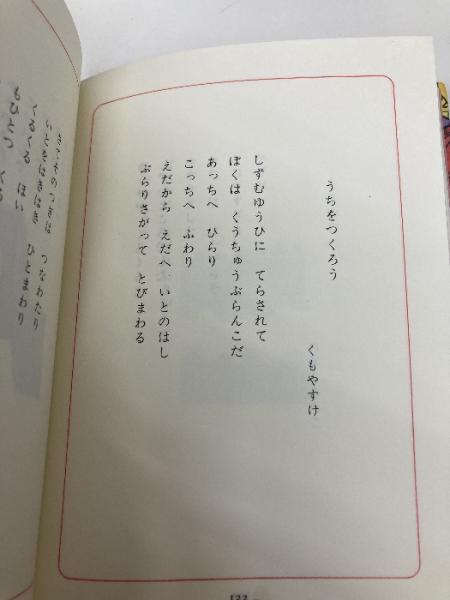 うちをつくろう
くもやすけ
しずむゆうひに てらされて
ぼくは くうちゅうぶらんこだ
あっちへ ひらり
こっちへ ふわり
えだから えだへ いとのはし
ぶらりさがって とびまわる
さてそのつぎは つなわたり
いとをはきはき ひとまわり
くるくる ほい
もひとつ くる
122